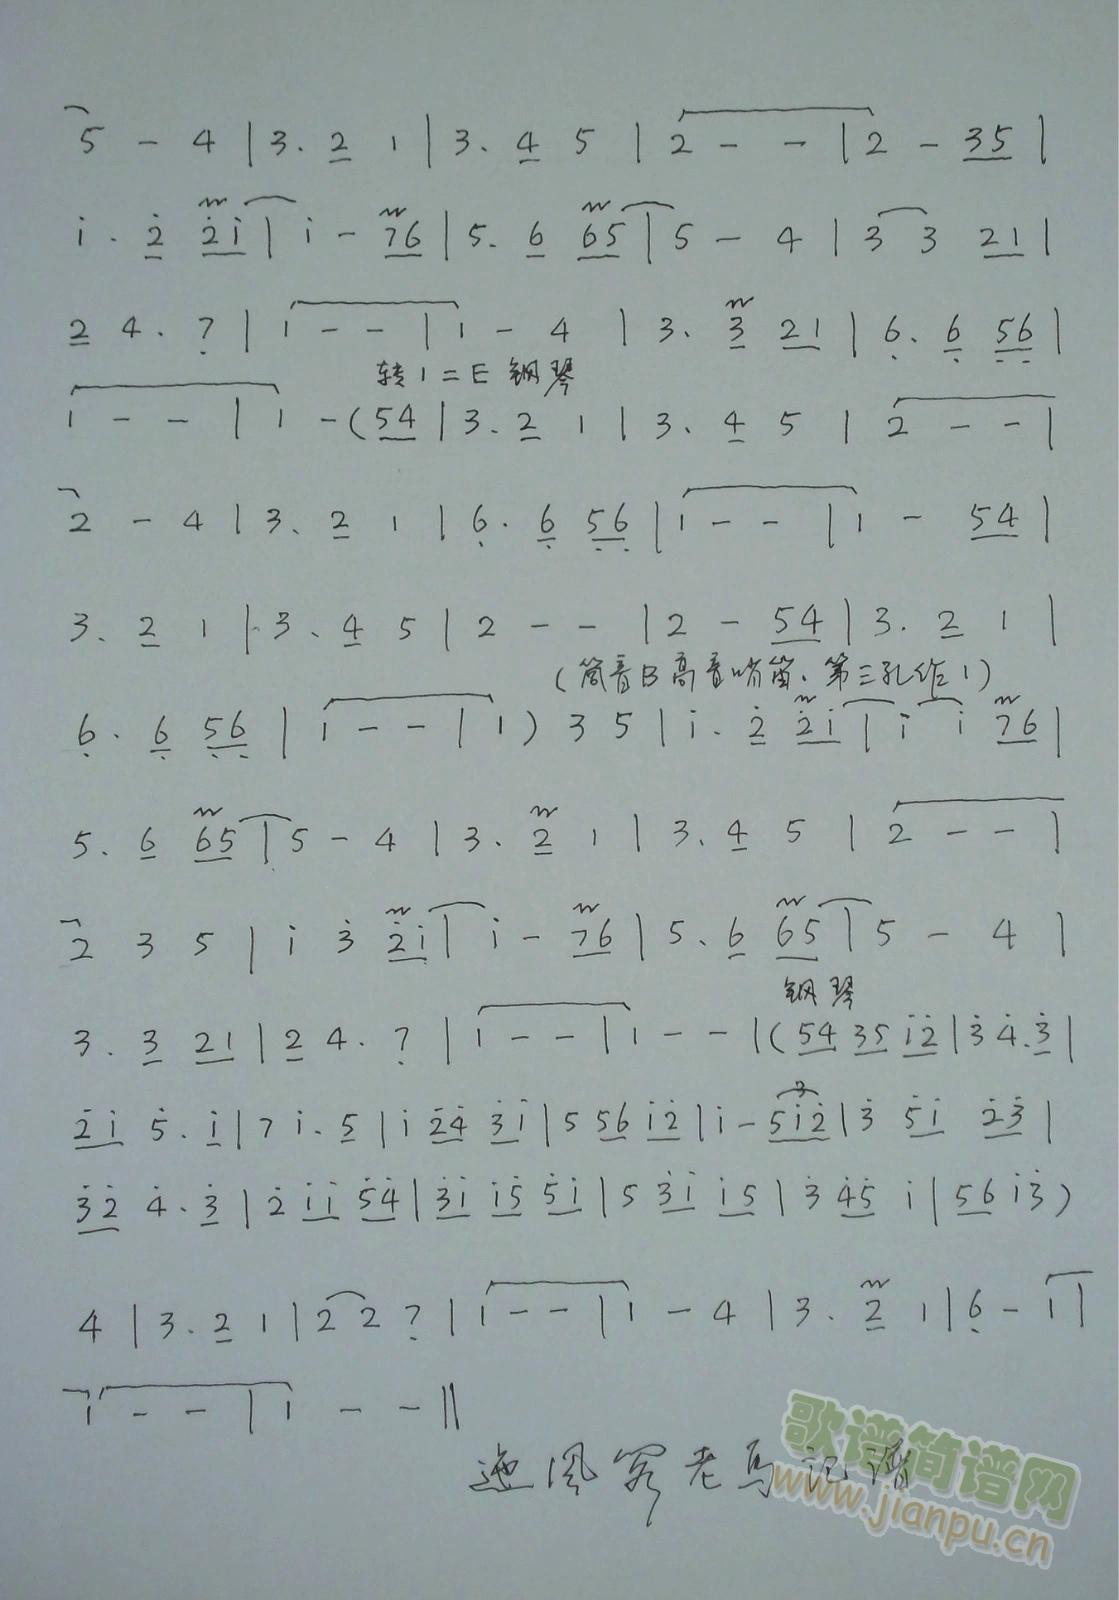 5 - 4 | 3. 2 1 | 3. 4 5 | 2 - - | 2 - 35 |
i. 2̇ 2̇i | i - 76 | 5. 6 65 | 5 - 4 | 3 3 21 |
2 4. 7̣ | 1 - - | 1 - 4 | 3. 3 21 | 6̣. 6̣ 5̣6̣ |
转1=E 钢琴
1 - - | 1 - (54 | 3. 2 1 | 3. 4 5 | 2 - - |
2 - 4 | 3. 2 1 | 6̣. 6̣ 5̣6̣ | 1 - - | 1 - 54 |
3. 2 1 | 3. 4 5 | 2 - - | 2 - 54 | 3. 2 1 |
(筒音B高音哨笛.第三孔作1)
6̣. 6̣ 5̣6̣ | 1 - - | 1) 3 5 | i. 2̇ 2̇i | i i 76 |
5. 6 65 | 5 - 4 | 3. 2 1 | 3. 4 5 | 2 - - |
2 3 5 | i 3̇ 2̇i | i - 76 | 5. 6 65 | 5 - 4 |
钢琴
3. 3 21 | 2 4. 7̣ | 1 - - | 1 - - | (54 35 i2̇ | 3̇ 4̇. 3̇ |
2̇i 5̇. i | 7 i. 5 | i 2̇4̇ 3̇i | 5 56 i2̇ | i - 5i2̇ | 3̇ 5̇i 2̇3̇ |
3̇2̇ 4̇. 3̇ | 2̇ ii 5̇4̇ | 3̇i i5̇ 5̇i | 5 3̇i i5 | 3̇ 4̇5̇ i | 56 i3̇)
4 | 3. 2 1 | 2 2 7̣ | 1 - - | 1 - 4 | 3. 2 1 | 6̣ - 1 |
1 - - | 1 - - ‖
风客老马记谱
歌谱简谱网
www.jianpu.cn